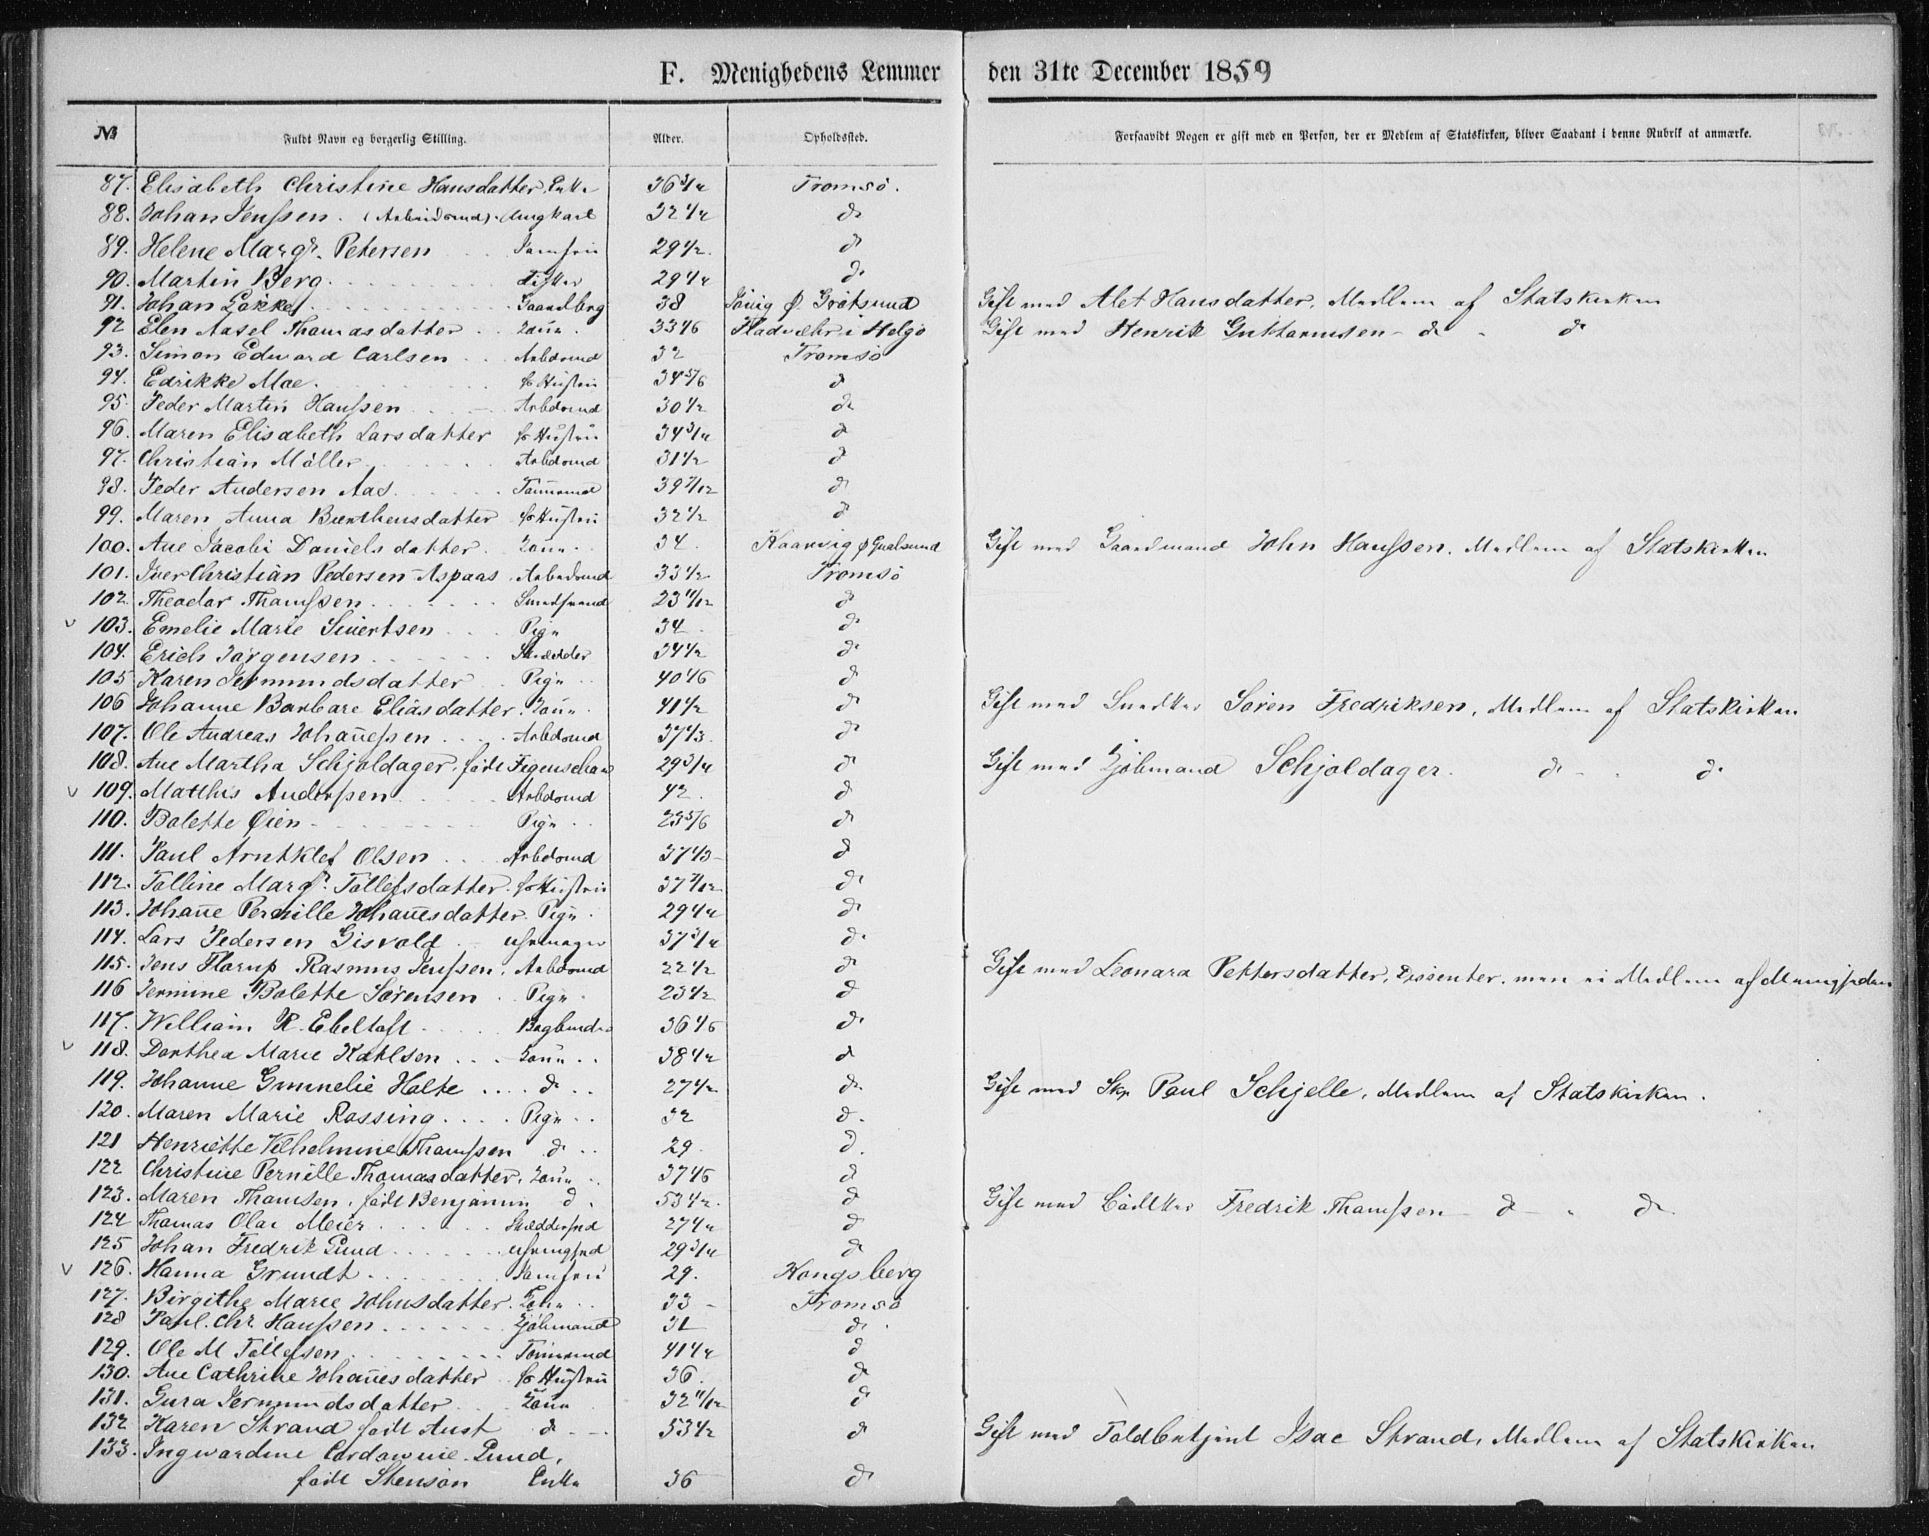 F. Menighedens Lemmer den 31te December 1859
No Fuldt Navn og borgerlig Stilling. Alder. Opholdssted. Forsaavidt Nogen er gift med en Person, der er Medlem af Statskirken, bliver Saadant i denne Rubrik at anmærke.
87. Elisabeth Christine Hansdatter, Enke 36 3/4 Tromsö.
88. Johan Jenssen. (Arbeidsmd). Ungkarl 32 1/4 do
89. Helene Margr. Petersen Jomfru 29 1/2 do
90. Martin Berg Fisker 29 1/4 do
91. Johan Løkke Gaardbrg 38 Grötsund Gift med Alet Hansdatter, Medlem af Statskirken
92 Elen Aasel Thomasdatter Kone 33 1/6 i Helgö Gift med Henrik do do
93. Simon Edward Carlsen Arbdsmd 32 Tromsö
94. Edrikke Moe. fr Hustru 34 5/6 do
95. Peder Martin Hanssen Arbdsmd 30 1/2 do
96. Maren Elisabeth Larsdatter fr Hustru 34 3/4 do
97. Christian Möller Arbdsmd 31 1/2 do
98. Peder Andersen Aas Tömrmd 39 7/12 do
99. Maren Anna datter fr Hustru 32 1/2 do
100. Ane Jacobi Daniels datter Kone 34. Gift med Gaardmand John Hanssen, Medlem af Statskirken
101. Iver Christian Pedersen Aspaas Arbedsmd 33 1/2 Tromsö
102. Theodor Thomssen 23 11/12 do
v 103. Emelie Marie Sivertsen Pige 34. do
104. Erich Jörgensen Skrædder 34 1/2 do
105 Karen Jermundsdatter Pige 40 1/6 do
106 Johanne Barbare Eliasdatter Kone 41 1/2 do Gift med Snedker Sören Fredriksen, Medlem af Statskirken
107. Ole Andreas Johannessen Arbdsmd 37 1/3 do
108. Ane Martha Schjoldager, födt Figenschau 29 3/4 do Gift med Kjöbmand Schjoldager. do do
v 109. Matthis Anderssen Arbdsmd 42. do
110. Bolette Øien Pige 23 5/6 do
111. Paul Arntklef Olsen Arbdsmd 37 1/3 do
112. Tolline Margr. Tollefsdatter. fr Hustru 37 7/12 do
113. Johanne Pernille Johannesdatter Pige 29 1/4 do
114. Lars Pedersen Gisvold Uhrmager 37 3/4 do
115. Jens Florup Rasmus Jenssen, Arbdsmd 22 1/2 do Gift med Leonara Pettersdatter, Dissenter, men ei Medlem af Menigheden
116 Jermine Bolette Sörensen Pige 23 1/2 do
117. William R. Ebeltoft Bogbinder 36 1/6 do
v 118. Dorthea Marie Karlsen Kone 38 1/2 do
119. Johanne Gunnelie Holte do 27 1/2 do Gift med Skp. Paul Schjelle, Medlem af Statskirken.
120. Maren Marie Rossing Pige 32 do
121 Henriette Vilhelmine Thomssen do 29. do
122 Christine Pernille Thomasdatter, Kone 37 1/6 do
123. Maren Thomsen, födt Benjamin do 53 1/2 do Gift med Bödker Fredrik Thomssen do do
124 Thomas Olai Meier Skræddersvd 27 1/4 do
125 Johan Fredrik Lund Uhrmgsvd 29 3/4 do
v 126. Hanna Grundt Jomfru 29. Kongsberg
127. Birgithe Marie Johnsdatter. Kone 33 Tromsö
128 Paul. Chr. Hanssen Kjöbmand 31 do
129. Ole M Tollefsen Tömrmd 41 1/4 do
130. Ane Cathrine Johannesdatter fr Hustru 36. do
131. Gura Jermundsdatter Kone 32 11/12 do
132 Karen Strand födt Aust do 53 1/2 do Gift med Toldbetjent Isac Strand, Medlem af Statskirken
133. Ingvardine Lund,
födt Stenson Enke 36 do